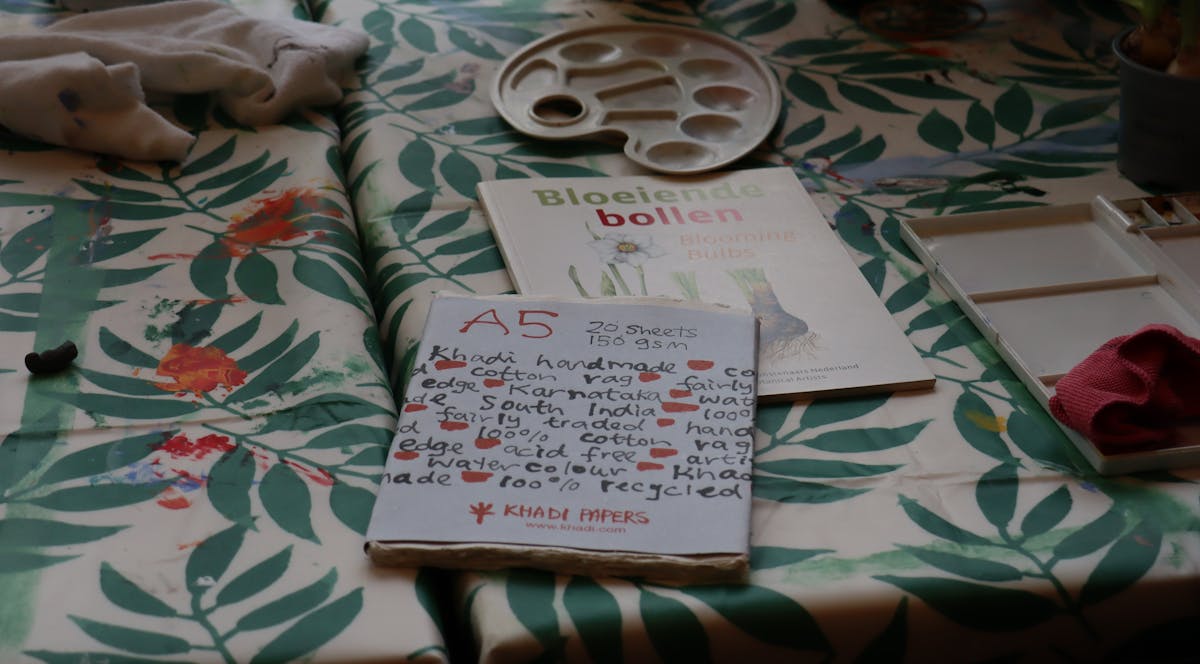 Bloeiende
bollen
Blooming
Bulbs
Nederland
Artists
A5
20 sheets
150 gsm
Khadi handmade co
d cotton rag fairly
edge Karnataka wat
de South India 100
fairly traded hand
d 100% cotton rag
edge acid free arti
water colour Khad
made 100% recycled
KHADI PAPERS
www.khadi.com